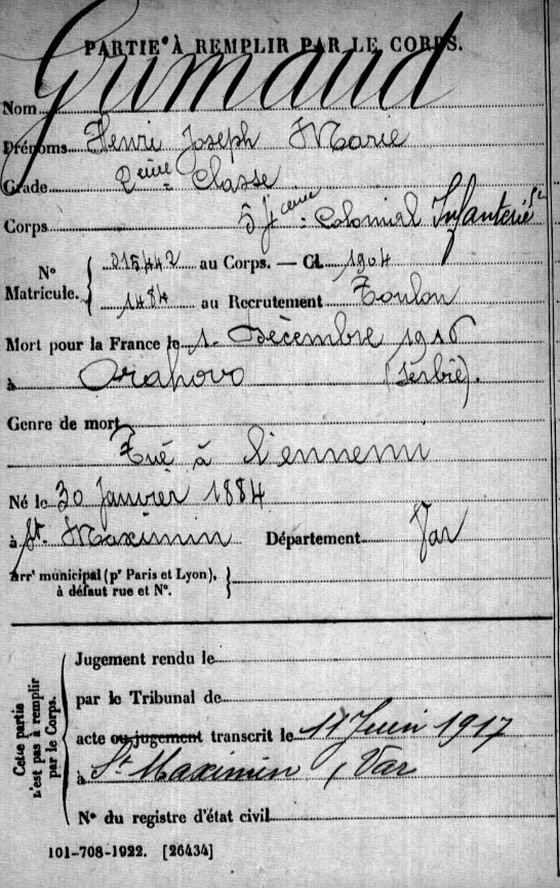 PARTIE À REMPLIR PAR LE CORPS.
Nom Grimaud
Prénoms Henri Joseph Marie
Grade 2ème Classe
Corps 54ème Colonial Infanterie
N° Matricule. 015442 au Corps. — Cl. 1904
1484 au Recrutement Toulon
Mort pour la France le 1. Décembre 1916
à Orahovo (Serbie).
Genre de mort
Tué à l'ennemi
Né le 30 Janvier 1884
à St. Maximin Département Var
Arrt municipal (pr Paris et Lyon),
à défaut rue et N°.
Cette partie n'est pas à remplir par le Corps.
Jugement rendu le
par le Tribunal de
acte ou jugement transcrit le 11 Juin 1917
à St Maximin (Var
N° du registre d'état civil
101-708-1922. [26434]